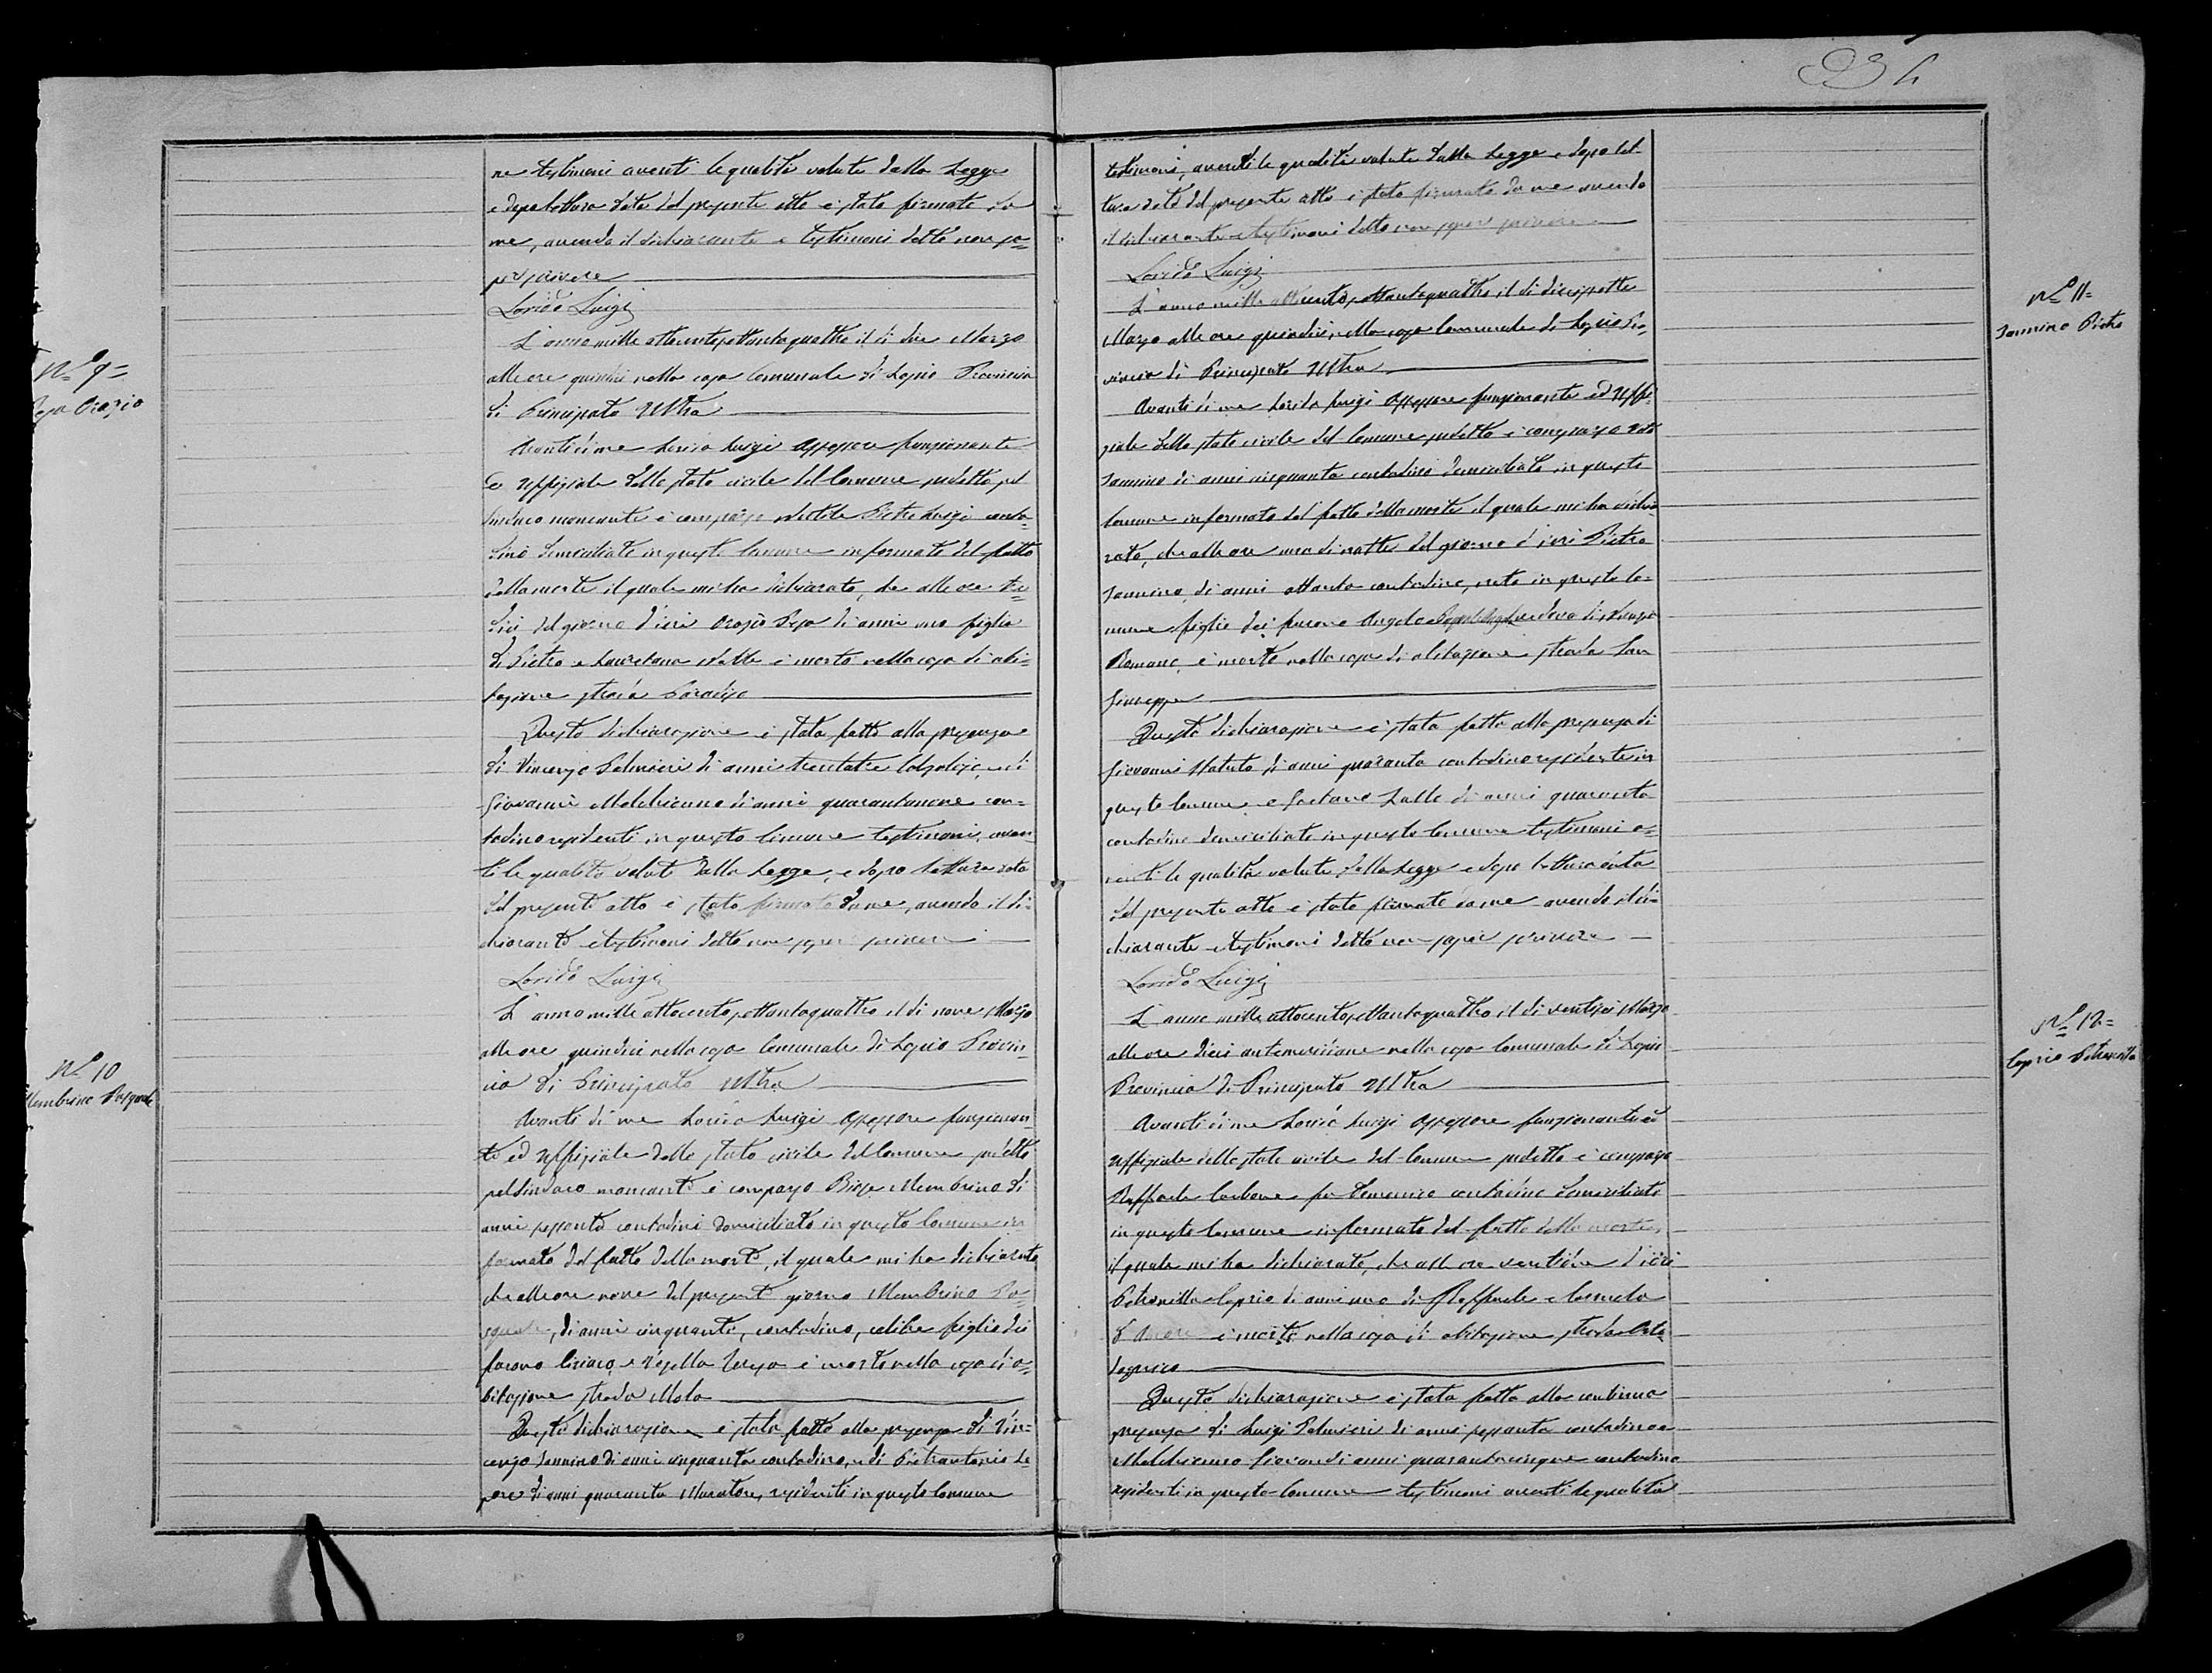 ne testimoni aventi le qualità volute dalla Legge
e dopo lettura data del presente atto è stato firmato da
me, avendo il dichiarante e testimoni detto non sa=
per scrivere
Lorido Luigi
N.° 9=
Orazio
L'anno mille ottocento settantaquattro il dì due Marzo
alle ore quindici nella casa Comunale di Provincia
di Principato Ultra
Avanti di me Luigi Assessore funzionante
ed Uffiziale dello stato civile del Comune sudetto pel
Sindaco mancante è comparso Luigi conta=
dino domiciliato in questo Comune informato del fatto
della morte il quale mi ha dichiarato, che alle ore
del giorno d'ieri Orazio di anni uno figlio
di Pietro e è morto nella casa di abi=
tazione strada
Questa dichiarazione è stata fatta alla presenza
di Vincenzo Palmieri di anni trentatre Calzolajo, e di
Giovanni Melchionno di anni quarantanove con=
tadino residenti in questo Comune testimoni, aven=
ti le qualità volute dalla Legge, e dopo lettura data
del presente atto è stato firmato da me, avendo il di=
chiarante e testimoni detto non saper scrivere
Lorido Luigi
N.° 10
Membrino Pasquale
L'anno mille ottocento settantaquattro il dì nove Marzo
alle ore quindici nella casa Comunale di Provin=
cia di Principato Ultra
Avanti di me Luigi Assessore funzionan=
te ed Uffiziale dello stato civile del Comune sudetto
pel Sindaco mancante è comparso Biase Membrino di
anni sessanta contadino domiciliato in questo Comune in
formato del fatto della morte, il quale mi ha dichiarato
che alle ore nove del presente giorno Membrino Pa=
squale, di anni cinquanta, contadino, celibe figlio dei
furono Ciriaco, e è morto nella casa di a=
bitazione strada Mola
Questa dichiarazione è stata fatta alla presenza di Vin=
cenzo Iannino di anni cinquanta contadino, e di Pietrantonio Le=
pore di anni quaranta Muratore, residenti in questo Comune
testimoni, aventi le qualità volute dalla Legge e dopo let=
tura data del presente atto è stato firmato da me avendo
il dichiarante e testimoni detto non saper scrivere
Lorido Luigi
N.° 11=
Iannino Pietro
L'anno mille ottocento settantaquattro, il dì diecisette
Marzo alle ore quindici, nella casa Comunale di Pro=
vincia di Principato Ultra
Avanti di me Luigi Assessore funzionante ed Uffi=
ziale dello stato civile del Comune sudetto è comparso
Iannino di anni cinquanta contadino domiciliato in questo
Comune informato del fatto della morte il quale mi ha dichia=
rato, che alle ore una di notte del giorno d'ieri Pietro
Iannino, di anni ottanta contadino, nato in questo Co=
mune figlio dei furono Angelo vedovo di
Romano, è morto nella casa di abitazione strada San
Giuseppe
Questa dichiarazione è stata fatta alla presenza di
Giovanni di anni quaranta contadino residente in
questo Comune e Gaetano di anni quaranta
contadino domiciliati in questo Comune testimoni a=
venti le qualità volute dalla Legge e dopo lettura data
del presente atto è stato firmato da me avendo il di=
chiarante e testimoni detto non saper scrivere
Lorido Luigi
N.° 12=
Caprio Petronilla
L'anno mille ottocento settantaquattro, il dì ventisei Marzo
alle ore dieci antemeridiane nella casa Comunale di
Provincia di Principato Ultra
Avanti di me Luigi Assessore funzionante ed
Uffiziale dello stato civile del Comune sudetto è comparso
Raffaele Carbone fu Domenico contadino domiciliato
in questo Comune informato del fatto della morte,
il quale mi ha dichiarato, che alle ore ventidue d'ieri
Petronilla Caprio di anni uno di Raffaele e Carmela
è morta nella casa di abitazione strada
Questa dichiarazione è stata fatta alla continua
presenza di Luigi Palmieri di anni sessanta contadino e
Melchionno Giovanni di anni quarantacinque contadino
residenti in questo Comune testimoni aventi le qualità